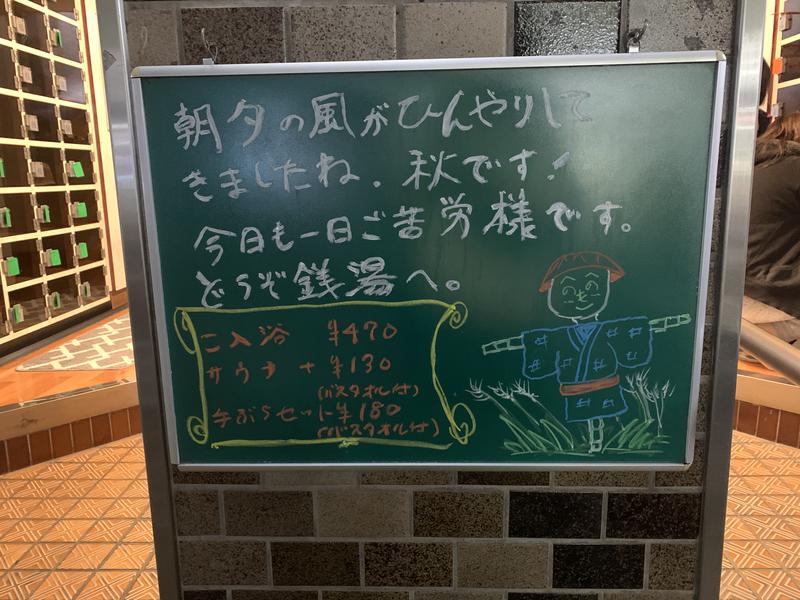 朝夕の風がひんやりして
きましたね。秋です!
今日も一日ご苦労様です。
どうぞ銭湯へ。
ご入浴 ¥470
サウナ + ¥130
(バスタオル付)
手ぶらセット ¥180
(バスタオル付)